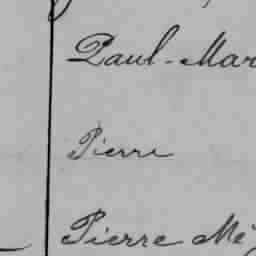 Paul-Mar
Pierre
Pierre Mé